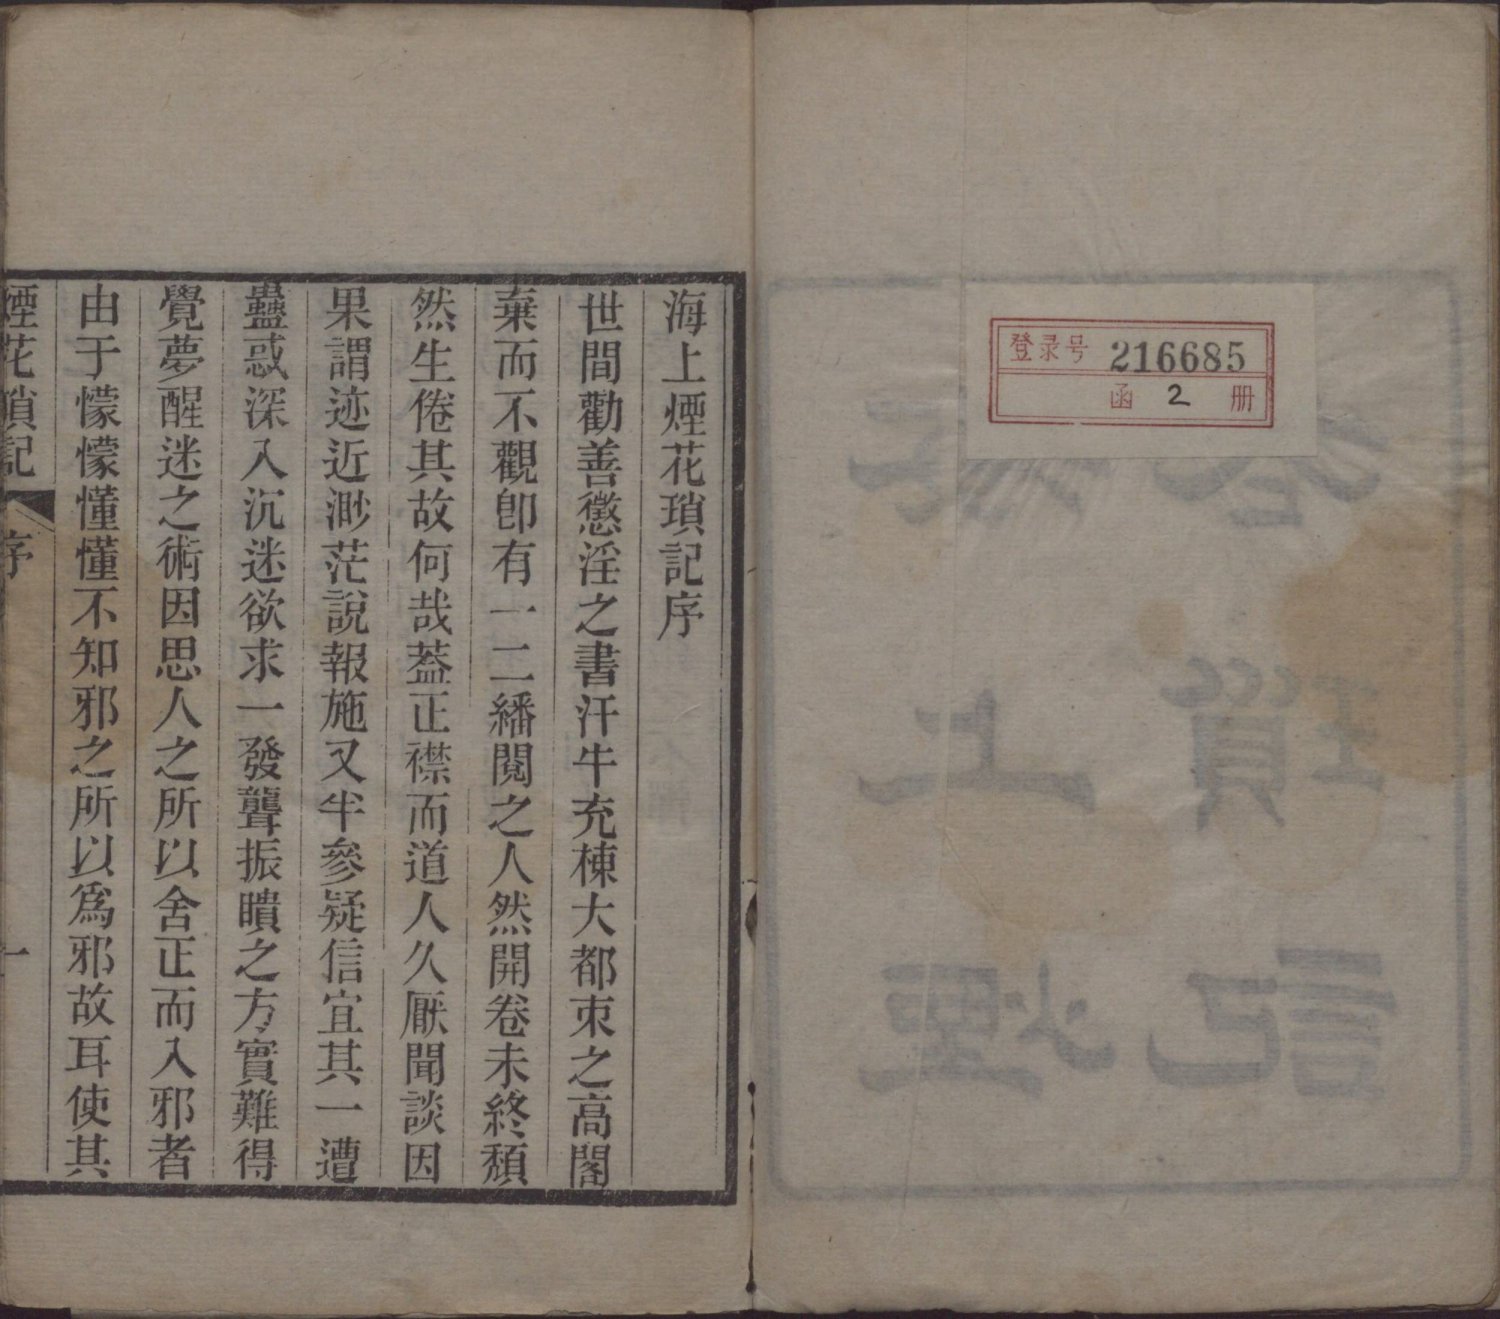 登录号 216685
函 2 册
海上煙花瑣記序
世間勸善懲淫之書汗牛充棟大都束之高閣
棄而不觀卽有一二繙閱之人然開卷未終頹
然生倦其故何哉蓋正襟而道人久厭聞談因
果謂迹近渺茫說報施又半參疑信宜其一遭
蠱惑深入沉迷欲求一發聾振聵之方實難得
覺夢醒迷之術因思人之所以舍正而入邪者
由于懞懞懂懂不知邪之所以爲邪故耳使其
煙花瑣記 序 一